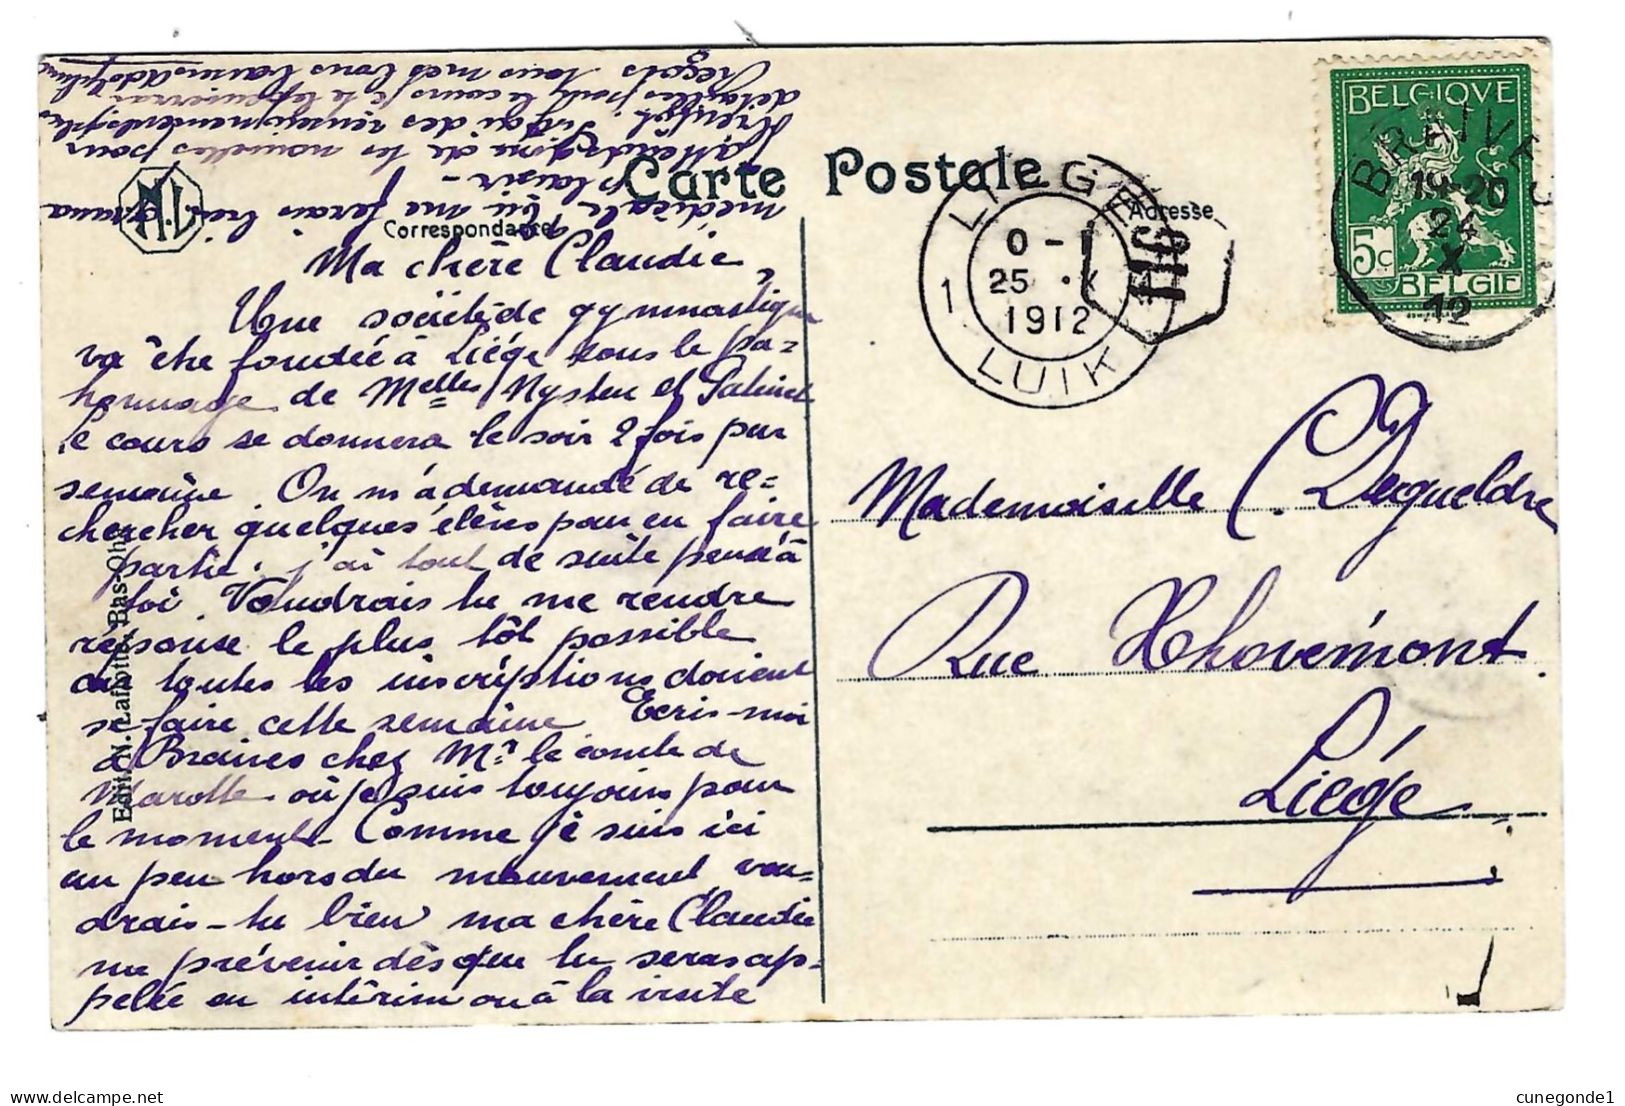 Carte Postale
Correspondance
Adresse
Ma chère Claudie,
Une société de gymnastique
va être fondée à Liége sous le pa=
tronnage de Melles Nysten et
le cours se donnera le soir 2 fois par
semaine. On m'a demandé de re=
chercher quelques élèves pour en faire
partie. j'ai tout de suite pensé à
toi. Voudrais tu me rendre
réponse le plus tôt possible
car toutes les inscriptions doivent
se faire cette semaine Ecris-moi
à Braives chez Mr le comte de
Marotte où je suis toujours pour
le moment - Comme je suis ici
un peu hors du mouvement, vou=
drais-tu bien ma chère Claudie
me prévenir dès que tu seras ap=
pelée en intérim ou à la visite
médicale tu me ferais bien grand
plaisir -
J'attends donc de tes nouvelles pour
bientôt. Si j'ai des renseignements plus
détaillés sur le cours je te les enverrai
Reçois tous mes bons baisers Adolphine
N.L.
Edit. N. Laflotte, Bas-Oha
BELGIQUE
5c
BELGIE
BRAIVES
19-20
24
X
12
LIEGE
0 - 1
25 X
1912
1
LUIK
116
Mademoiselle C. Dequeldre
Rue Xhovémont.
Liége
cunegonde1